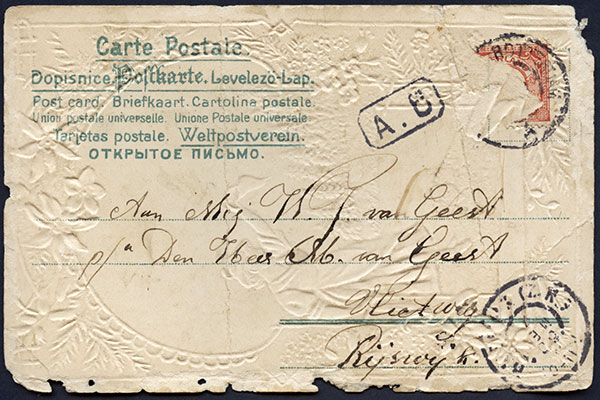 Carte Postale.
Dopisnice. Postkarte. Levelezö-Lap.
Post card. Briefkaart. Cartoline postale.
Union postale universelle. Unione Postale universale.
Tarjetas postale. Weltpostverein.
ОТКРЫТОЕ ПИСЬМО.
A.
Aan Mej W. J. van Geest
p/a Den Heer M. van Geest
Vlietweg
Rijswijk.
(Z.H)